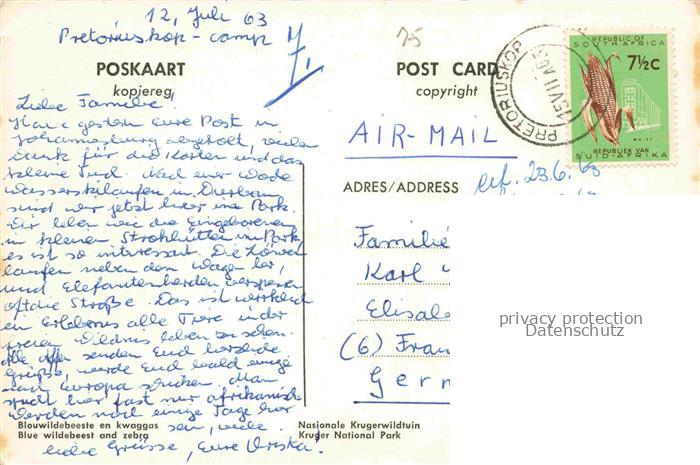 12. Juli 63
Pretoriuskop - camp
25
POSKAART
kopiereg
POST CARD
copyright
AIR-MAIL
ADRES/ADDRESS
PRETORIUSKOP
REPUBLIC OF
SOUTH AFRICA
7½c
REPUBLIEK VAN
SUID-AFRIKA
erh. 23.6.63
Liebe Familie!
Habe gestern Eure Post in
Johannesburg abgeholt, vielen
Dank für die Karten und das
kleine Päd. Nach einer Woche
Wasserskilaufen in Durban
sind wir jetzt hier im Park.
Wir leben wie die Eingeborenen
in kleinen Strohhütten im Park,
es ist so interessant. Die Löwen
laufen neben dem Wagen her,
und Elefantenherden versperren
oft die Straße. Das ist wirklich
ein Erlebnis alle Tiere in der
freien Wildnis leben zu sehen.
Alle Affen senden Euch herzliche
Grüße, werde Euch bald einige
nach Europa schicken. Man
spricht hier fast nur afrikanisch
werden noch einige Tage hier
sein, viele
liebe Grüsse, Eure
Familie
Karl
Elisabe
(6) Fran
Germ
privacy protection
Datenschutz
Blouwildebeeste en kwaggas
Blue wildebeest and zebra
Nasionale Krugerwildtuin
Kruger National Park